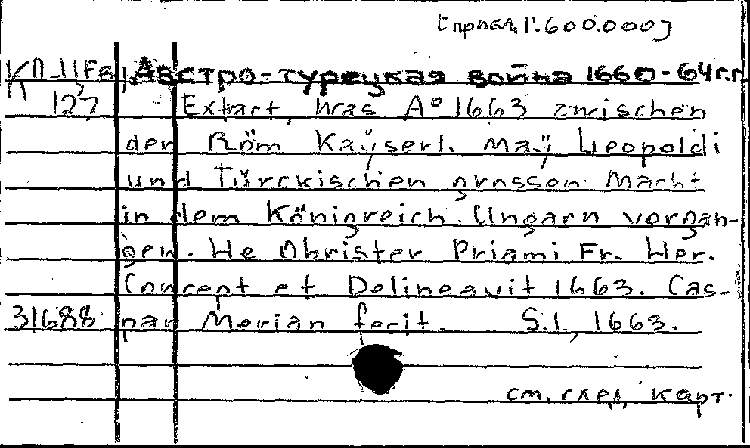 [прибл. 1:600.000]
Австро-турецкая война 1660-64 г.г.
127 Extract, was A° 1663 zwischen
der Röm Kaÿserl. Maÿ Leopoldi
und Türckischen grossen Macht
in dem Königreich Ungarn vorgan-
gen. He Obrister Priami Fr. Her.
Concept et Delineavit 1663. Cas-
31688 par Merian fecit. S.l., 1663.
см. след. карт.